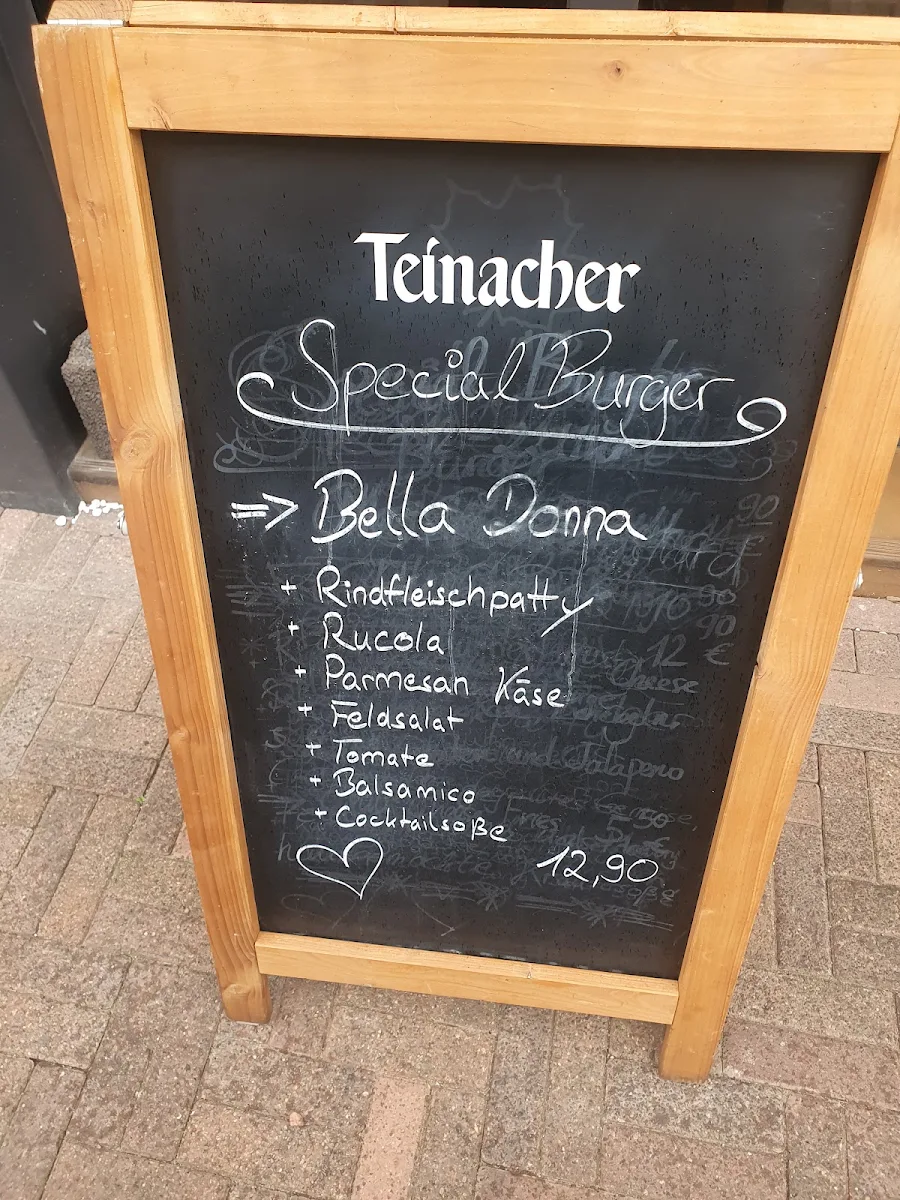 Teinacher
Special Burger
=> Bella Donna
+ Rindfleischpatty
+ Rucola
+ Parmesan Käse
+ Feldsalat
+ Tomate
+ Balsamico
+ Cocktailsoße
12,90